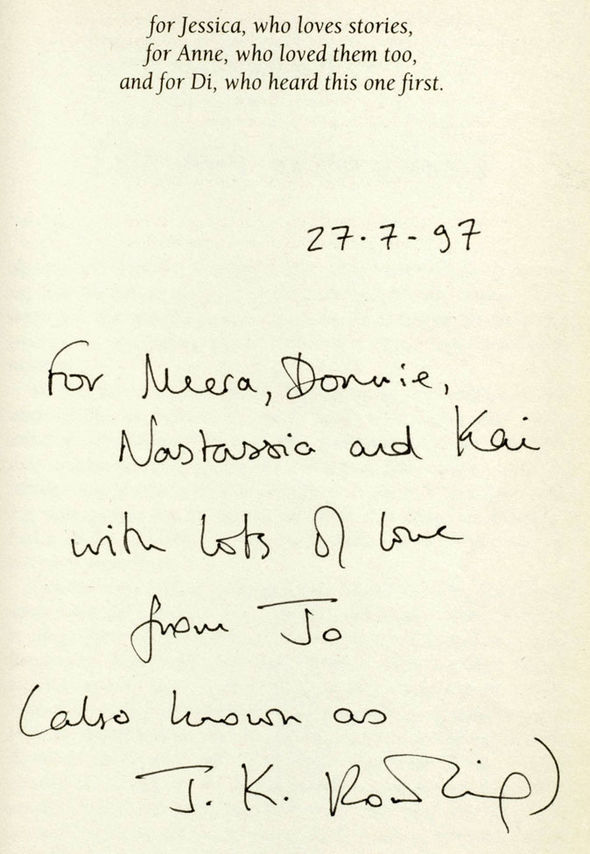 for Jessica, who loves stories,
for Anne, who loved them too,
and for Di, who heard this one first.
27.7-97
For Meera, Donnie,
Nastassia and Kai
with lots of love
from Jo
(also known as
J.K. Rowling)